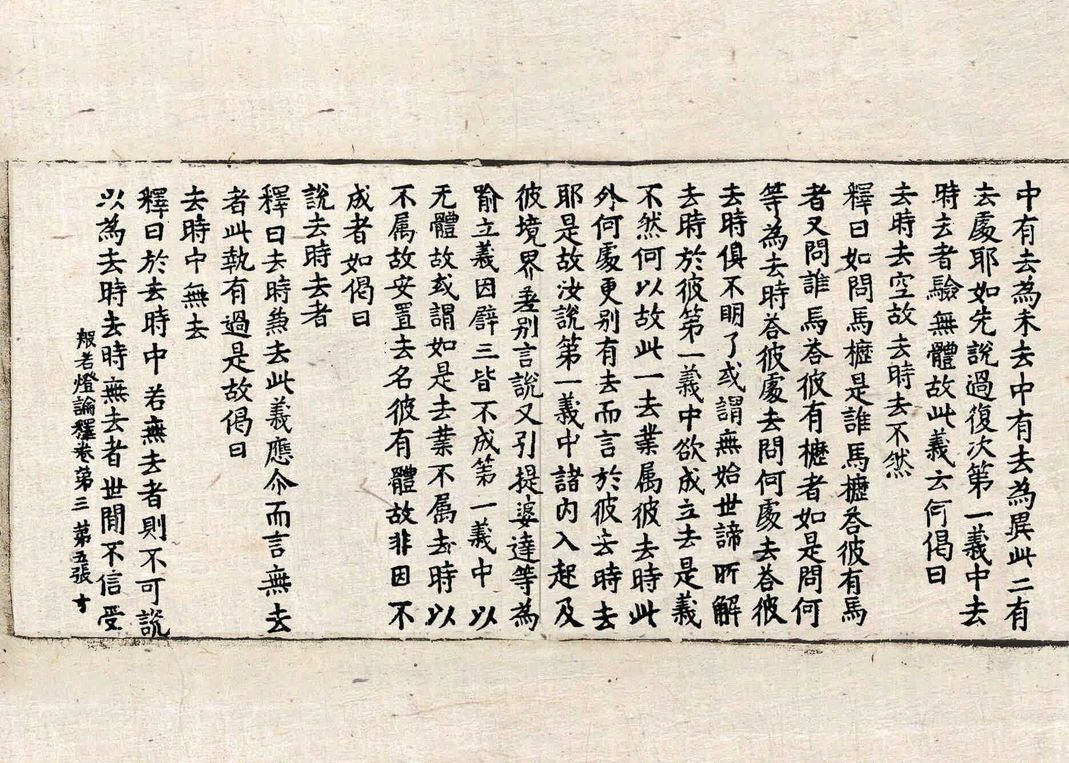 中有去為未去中有去為異此二有
去處耶如先說過復次第一義中去
時去者驗無體故此義云何偈曰
去時去空故 去時去不然
釋曰如問馬櫪是誰馬櫪荅彼有馬
者又問誰馬荅彼有櫪者如是問何
等為去時荅彼處去問何處去荅彼
去時俱不明了或謂無始世諦所解
去時於彼第一義中欲成立去是義
不然何以故此一去業属彼去時此
外何處更别有去而言於彼去時去
耶是故汝說第一義中諸内入起及
彼境界差别言說又引提婆達等為
喻立義因譬三皆不成第一義中以
无體故或謂如是去業不属去時以
不属故安置去名彼有體故非因不
成者如偈曰
說去時去者
釋曰去時兼去此義應尒而言無去
者此執有過是故偈曰
去時中無去
釋曰於去時中若無去者則不可說
以為去時去時無去者世間不信受
般若燈論釋卷第三 第五張 寸